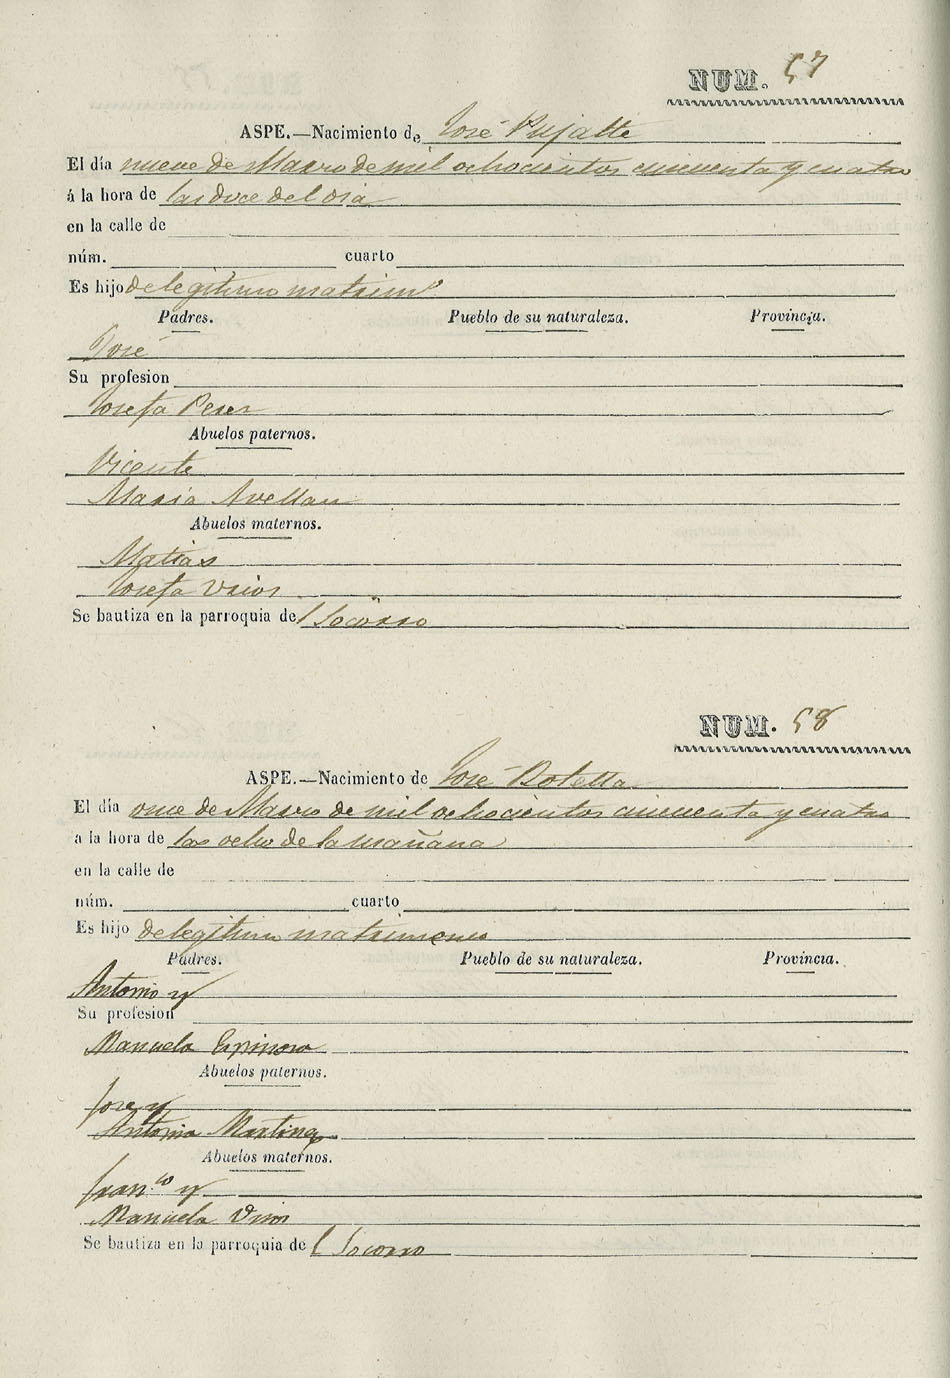 NUM. 57
ASPE.—Nacimiento de José Pujalte
El día nueve de Marzo de mil ochocientos cincuenta y cuatro
á la hora de las doce del dia
en la calle de
núm. cuarto
Es hijo de legitimo matrim.º
Padres. Pueblo de su naturaleza. Provincia.
José
Su profesion
Josefa Perez
Abuelos paternos.
Vicente
Maria Avellan
Abuelos maternos.
Matias
Josefa
Se bautiza en la parroquia del Socorro
NUM. 58
ASPE.—Nacimiento de José Botella
El día once de Marzo de mil ochocientos cincuenta y cuatro
a la hora de las ocho de la mañana
en la calle de
núm. cuarto
Es hijo de legitimo matrimonio
Padres. Pueblo de su naturaleza. Provincia.
Antonio y
Su profesion
Manuela Espinosa
Abuelos paternos.
Jose y
Antonia Martinez
Abuelos maternos.
Fran.co y
Manuela
Se bautiza en la parroquia de l Socorro